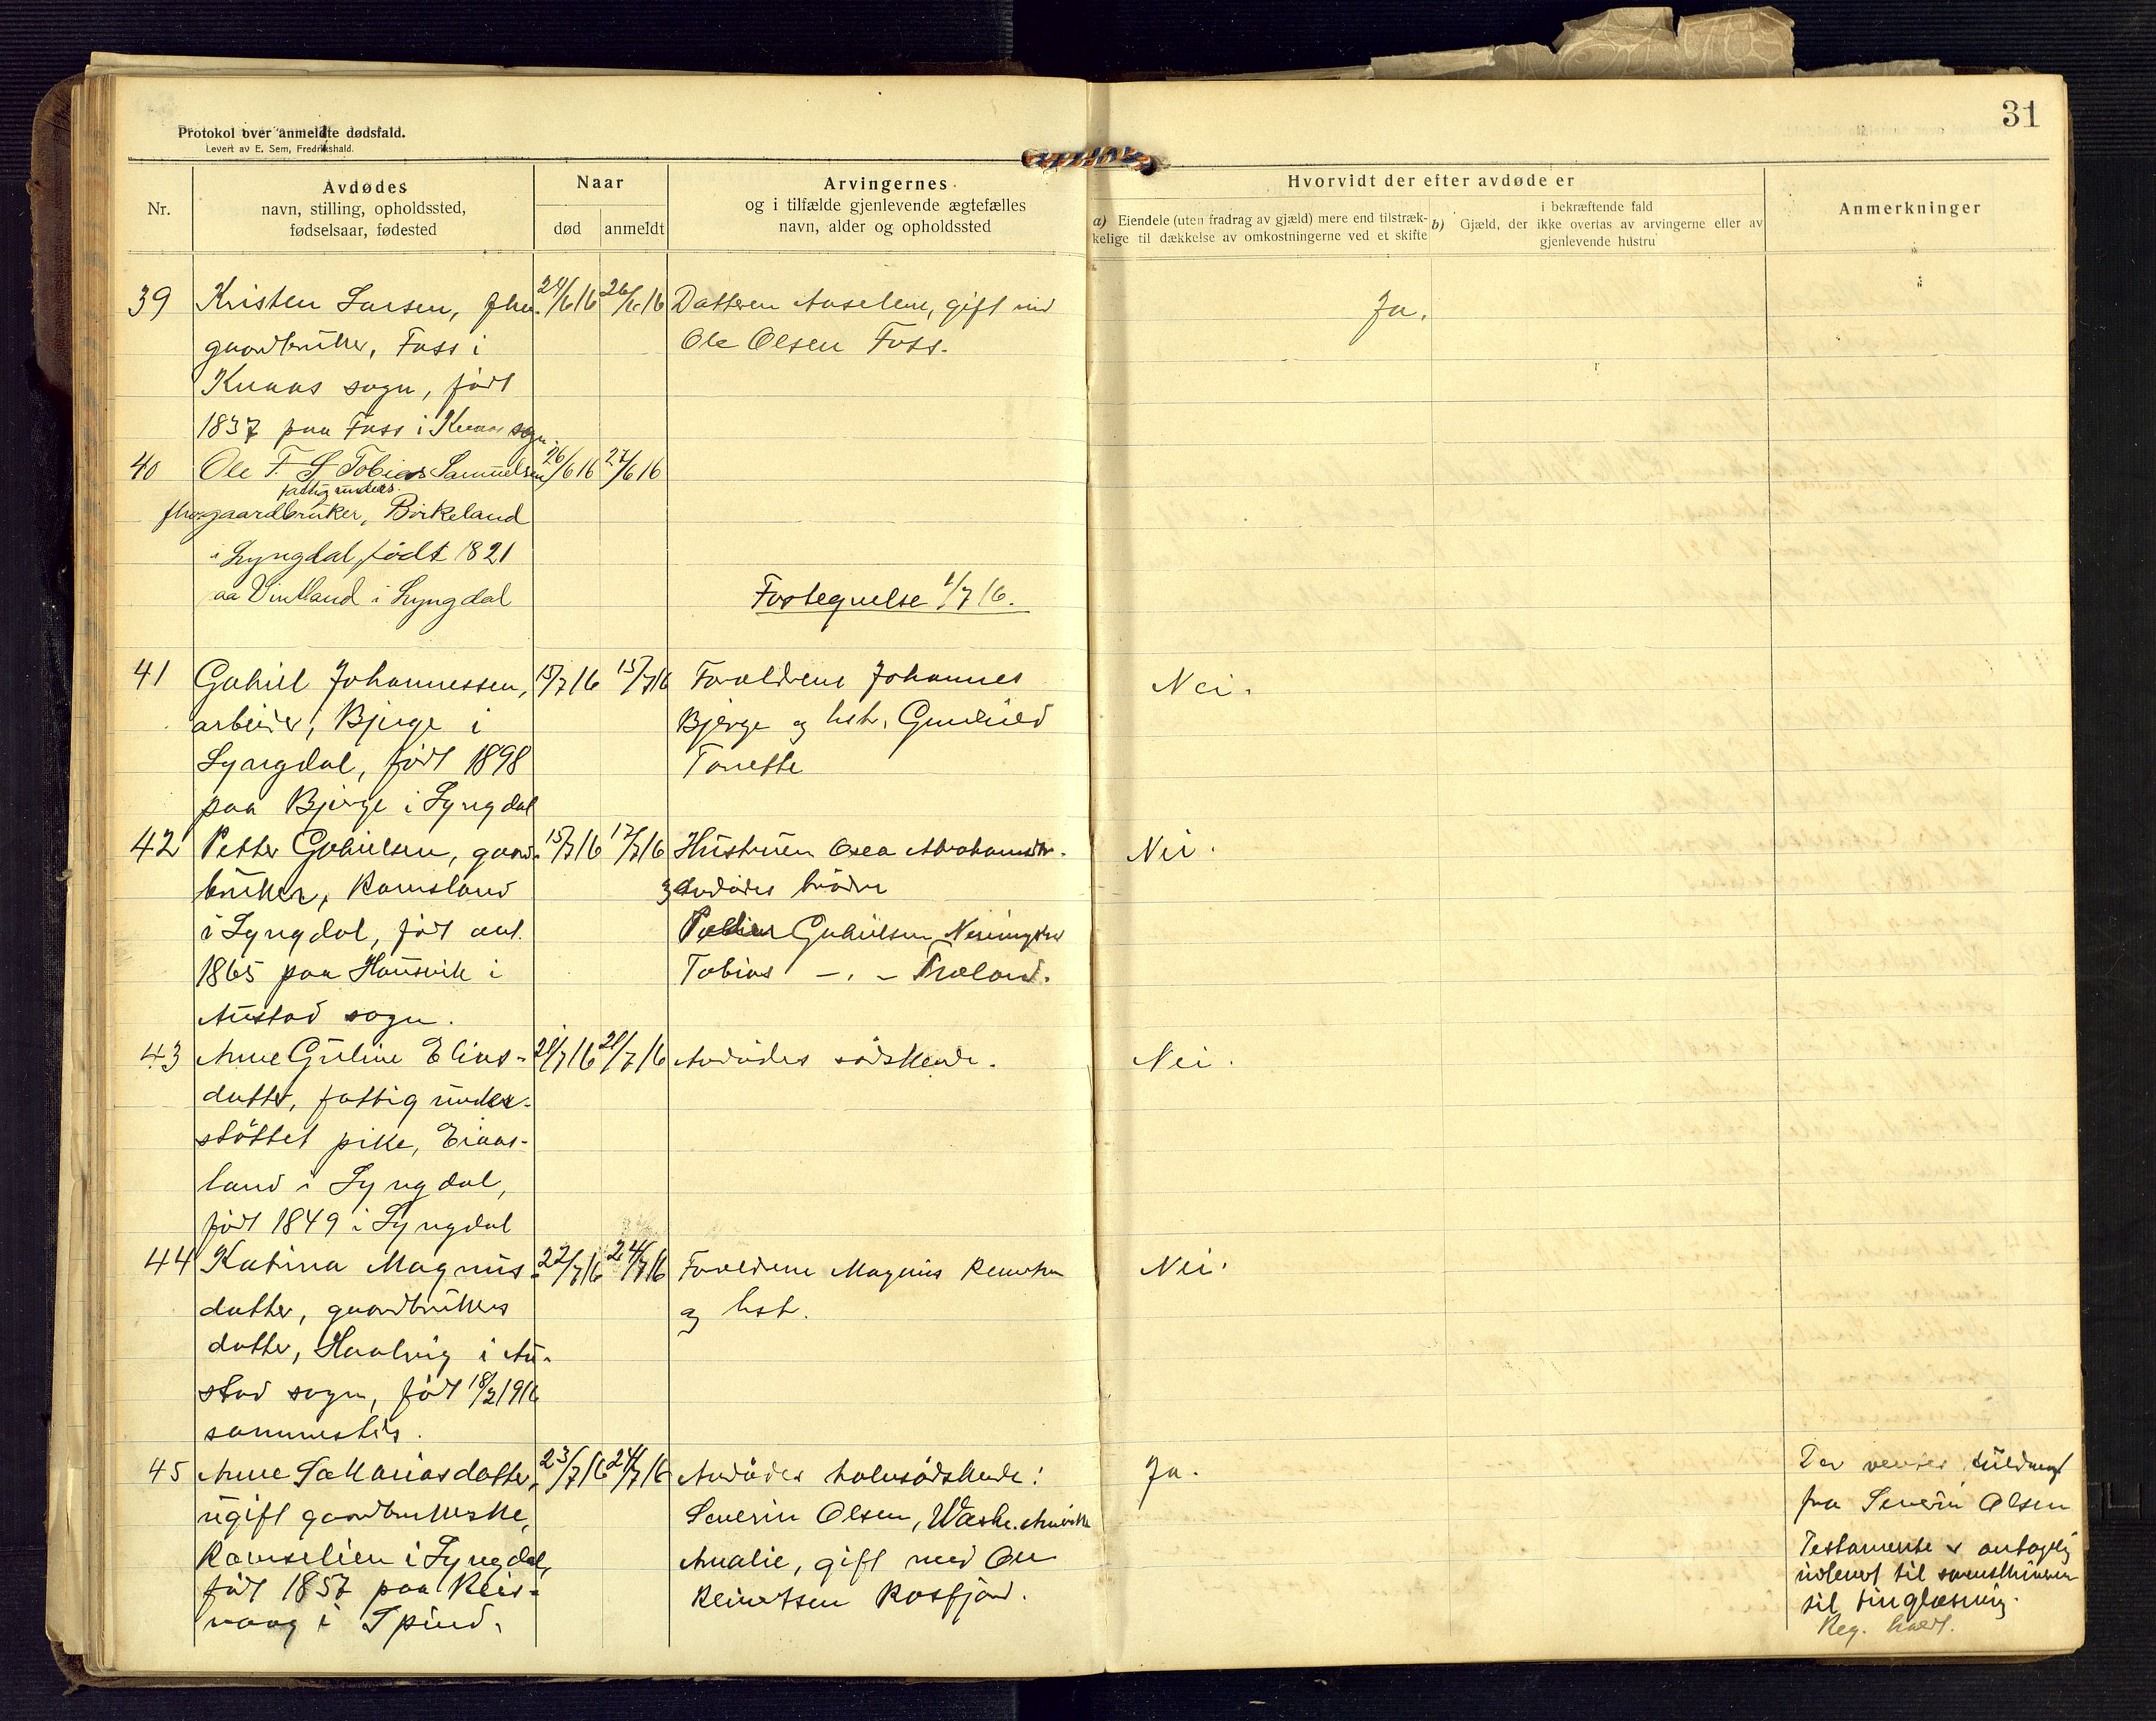 31
Protokol over anmeldte dødsfald.
Levert av E. Sem, Fredrikshald.
Nr.
Avdødes
navn, stilling, opholdssted,
fødselsaar, fødested
Naar
død
anmeldt
Arvingernes
og i tilfælde gjenlevende ægtefælles
navn, alder og opholdssted
Hvorvidt der efter avdøde er
a) Eiendele (uten fradrag av gjæld) mere end tilstræk-
kelige til dækkelse av omkostningerne ved et skifte
i bekræftende fald
b) Gjæld, der ikke overtas av arvingerne eller av
gjenlevende hustru
Anmerkninger
39 Kristen Larsen, fhv. 24/6 16 26/6 16 Datteren Aaselene, gift med Ja.
gaardbruker, Foss i Ole Olsen Foss.
Kvaas sogn, født
1837 paa Foss i Kvaas sogn.
40 Ole T. S Tobias Samuelsen 26/6 16 27/6 16
fattig unders.
fhv. gaardbruker, Birkeland
i Lyngdal, født 1821
paa Vintland i Lyngdal Fortegnelse 1/7 16.
41 Gabriel Johannessen, 15/7 16 15/7 16 Forældrene Johannes Nei.
arbeider, Bjerge i Bjerge og hst. Gunhild
Lyngdal, født 1898 Tonette
paa Bjerge i Lyngdal
42 Petter Gabrielsen, gaard- 15/7 16 17/7 16 Hustruen Osea Abrahamsdtr. Nei.
bruker, Ramsland 3 Avdødes brødre
i Lyngdal, født ant. Gabrielsen
1865 paa Hausvik i Tobias -"- Træland.
Austad sogn.
43 Anne Guline Elias- 21/7 16 21/7 16 Avdødes sødskende. Nei.
datter, fattig under-
støttet pike,
land i Lyngdal,
født 1849 i Lyngdal
44 Katrina Magnus- 22/7 16 24/7 16 Forældrene Magnus Reinertsen Nei.
datter, gaardbrukers og hst.
datter, Haalvig i Au-
stad sogn, født 18/2 1916
sammesteds.
45 Anne Sakkariasdatter, 23/7 16 24/7 16 Avdødes halvsødskende: Ja. Der ventes fuldmagt
ugift gaardbrukerske, Severin Olsen, Amerika fra Severin Olsen
Ramselien i Lyngdal, Amalie, gift med Ole Testamente antagelig
født 1857 paa Reis- Reinertsen Rosfjord. utlevert til sorenskriveren
vaag i Spind. til tinglæsning.
Reg.